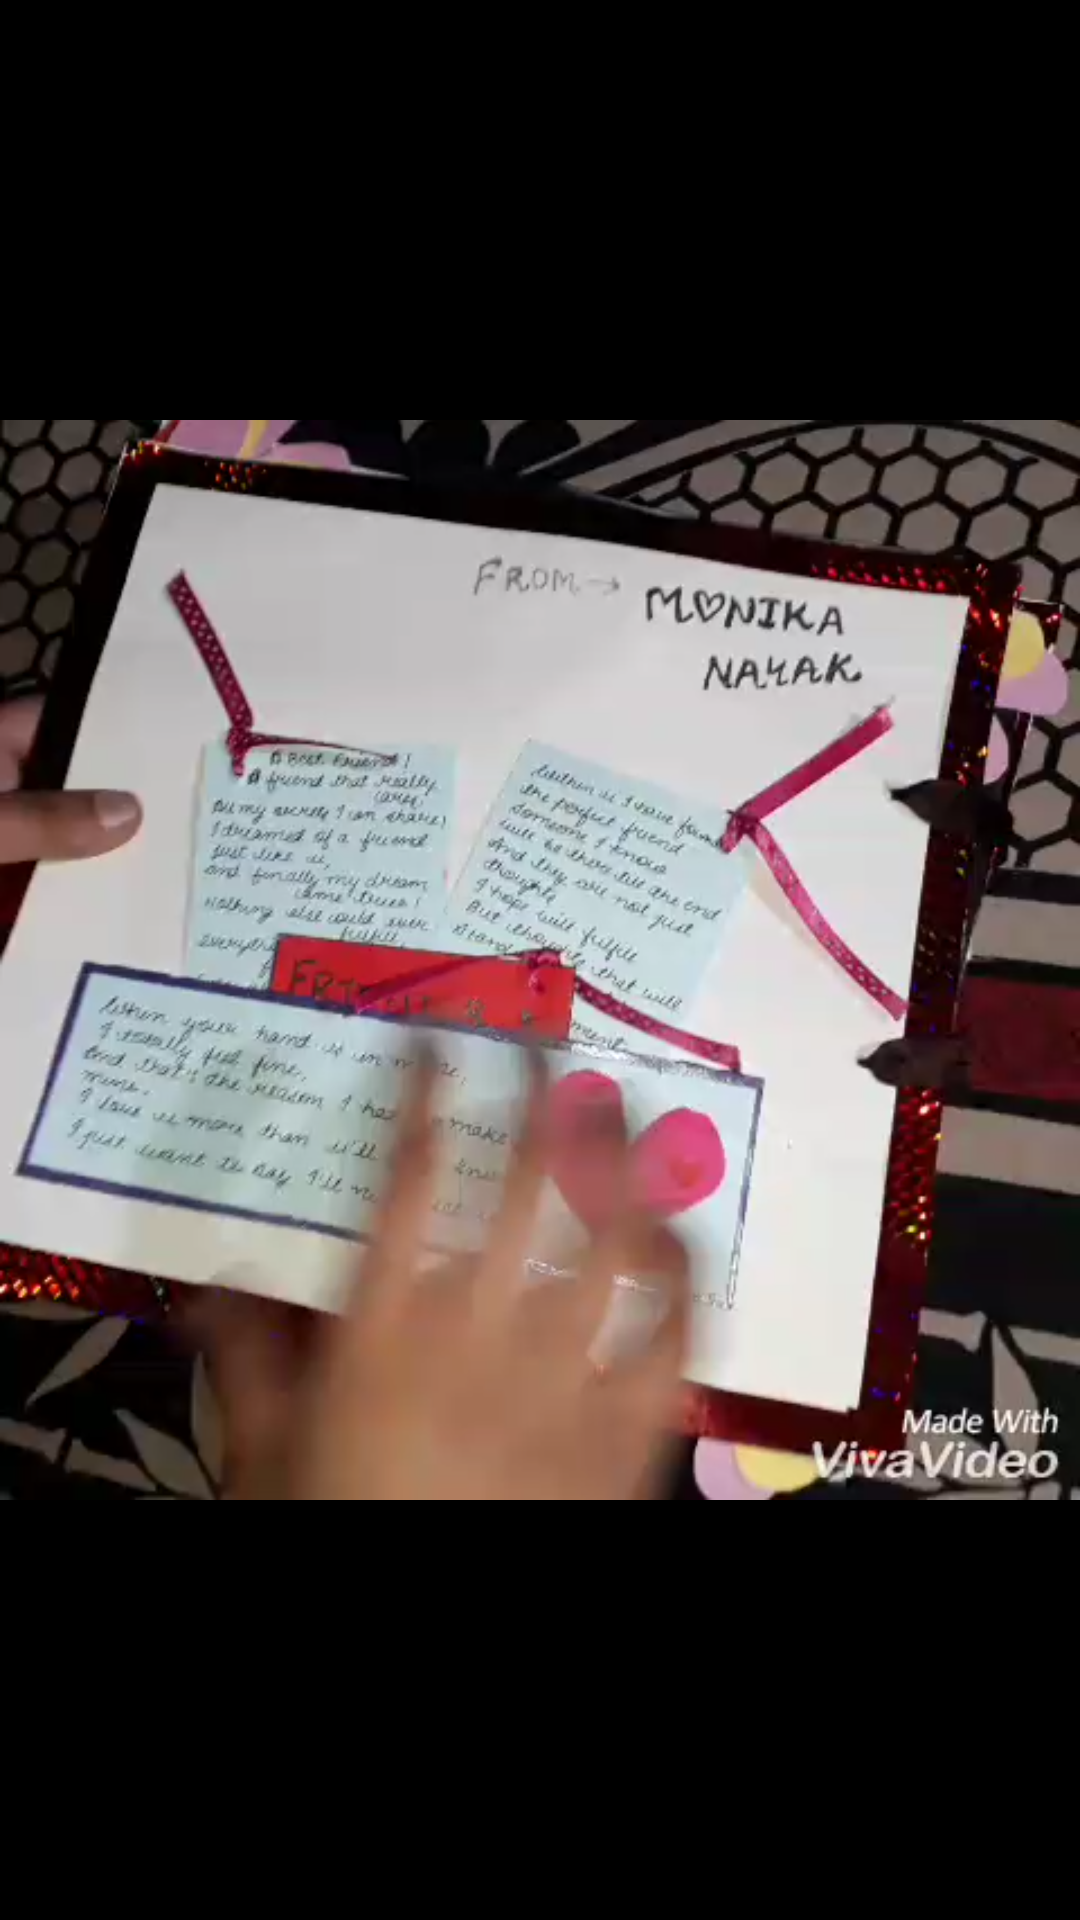 FROM → MONIKA
NAYAK
A Best Friend!
A friend that really
cares
All my secrets I can share!
I dreamed of a friend
just like u,
and finally my dream
came true!
nothing else could ever
fulfill
the perfect friend
Someone I know
will be there till the end
And they are not just
thoughts
I hope will fulfill
But thoughts that will
When your hand is in
I totally feel fine,
And that's the reason I
make
mine.
I love u more than u'll
I just want to say I'll
Made With
VivaVideo